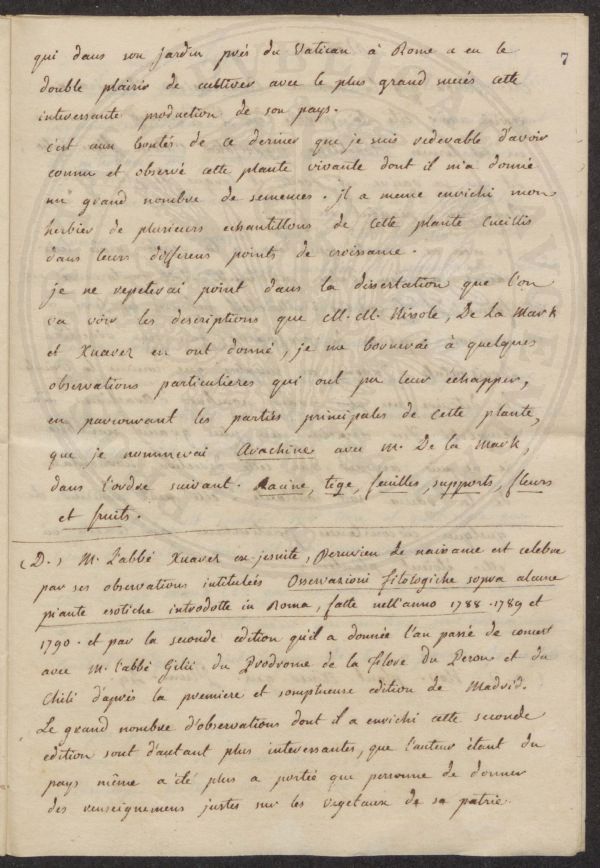 7
qui dans son jardin prés du Vatican à Rome a eu le
double plaisir de cultiver avec le plus grand succés cette
interessante production de son pays.
c'est aux bontés de ce dernier que je suis redevable d'avoir
connu et observé cette plante vivante dont il m'a donné
un grand nombre de semences. il a meme enrichi mon
herbier de plusieurs echantillons de cette plante cueillis
dans leurs differens points de croissance.
je ne repeterai point dans la dissertation que l'on
va voir les descriptions que M. M. Nissole, De La Mark
et Xuarez en ont donné, je me bornerai à quelques
observations particulieres qui ont pu leur echapper,
en parcourant les parties principales de cette plante,
que je nommerai Arachine avec M. De la Mark,
dans l'ordre suivant. Racine, tige, feuilles, supports, fleurs
et fruits.
(D.) M. l'abbé Xuarez ex jesuite, Peruvien de naissance est celebre
par ses observations intitulées Osservazioni filologiche sopra alcune
piante esotiche introdotte in Roma, fatte nell'anno 1788. 1789 et
1790. et par la seconde edition qu'il a donnée l'an passé de concert
avec M. l'abbé Gilii du Prodrome de la flore du Perou et du
Chili d'après la premiere et somptueuse edition de Madrid.
Le grand nombre d'observations dont il a enrichi cette seconde
edition sont d'autant plus interessantes, que l'auteur étant du
pays même a été plus a portée que personne de donner
des renseignemens justes sur les vegetaux de sa patrie.